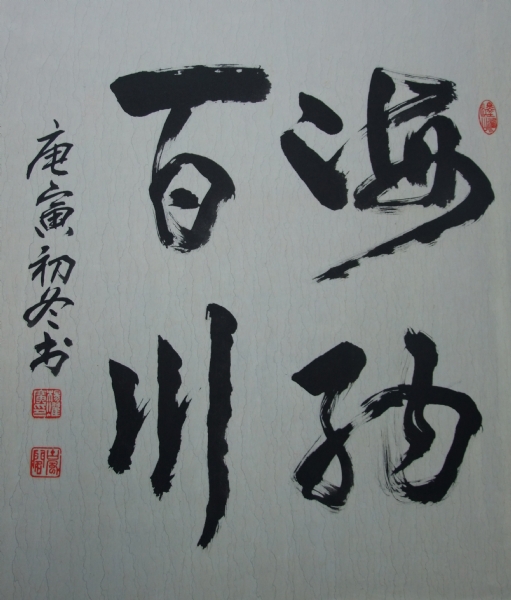 海纳
百川
庚寅初冬书